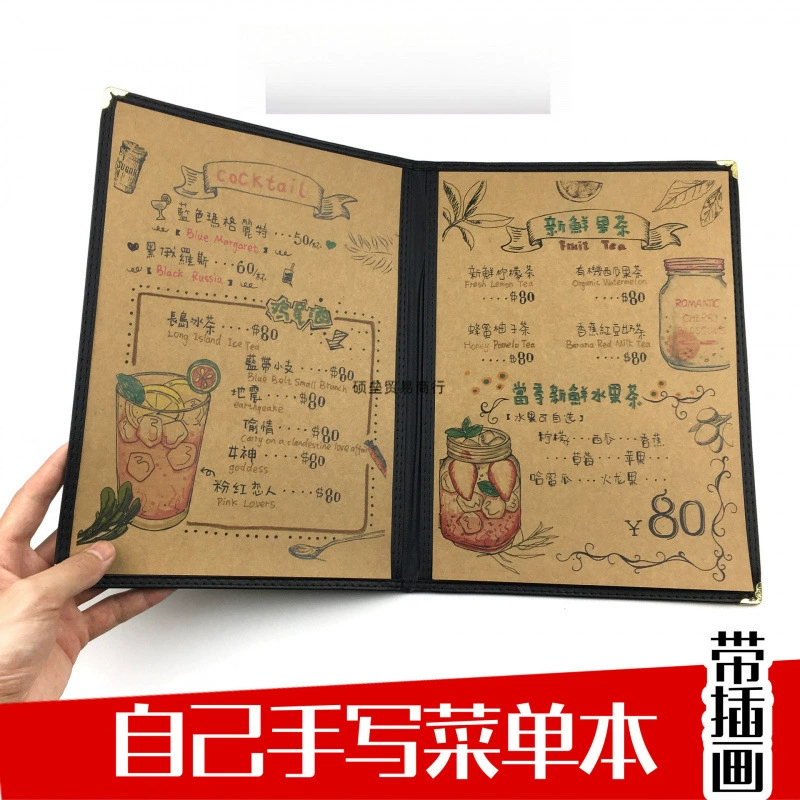 cocktail
藍色瑪格麗特...50/杯
【Blue Margaret】
黑俄羅斯...60/杯
【Black Russia】
鸡尾酒
長島冰茶....$80
Long Island Ice Tea
藍帶小支....$80
Blue Belt Small Branch
地震....$80
earthquake
偷情....$80
Carry on a clandestine love affair
女神....$80
goddess
粉红恋人....$80
Pink Lovers
新鮮果茶
Fruit Tea
新鮮柠檬茶
Fresh Lemon Tea
....$80
有機西瓜果茶
Organic Watermelon
....$80
蜂蜜柚子茶
Honey Pomelo Tea
....$80
香蕉紅豆奶茶
Banana Red Milk Tea
....$80
ROMANTIC
CHERRY
當季新鮮水果茶
【水果可自选】
柠檬...西瓜...香蕉
...草莓...苹果...
哈密瓜...火龙果...
¥80
硕垒贸易商行
带插画
自己手写菜单本